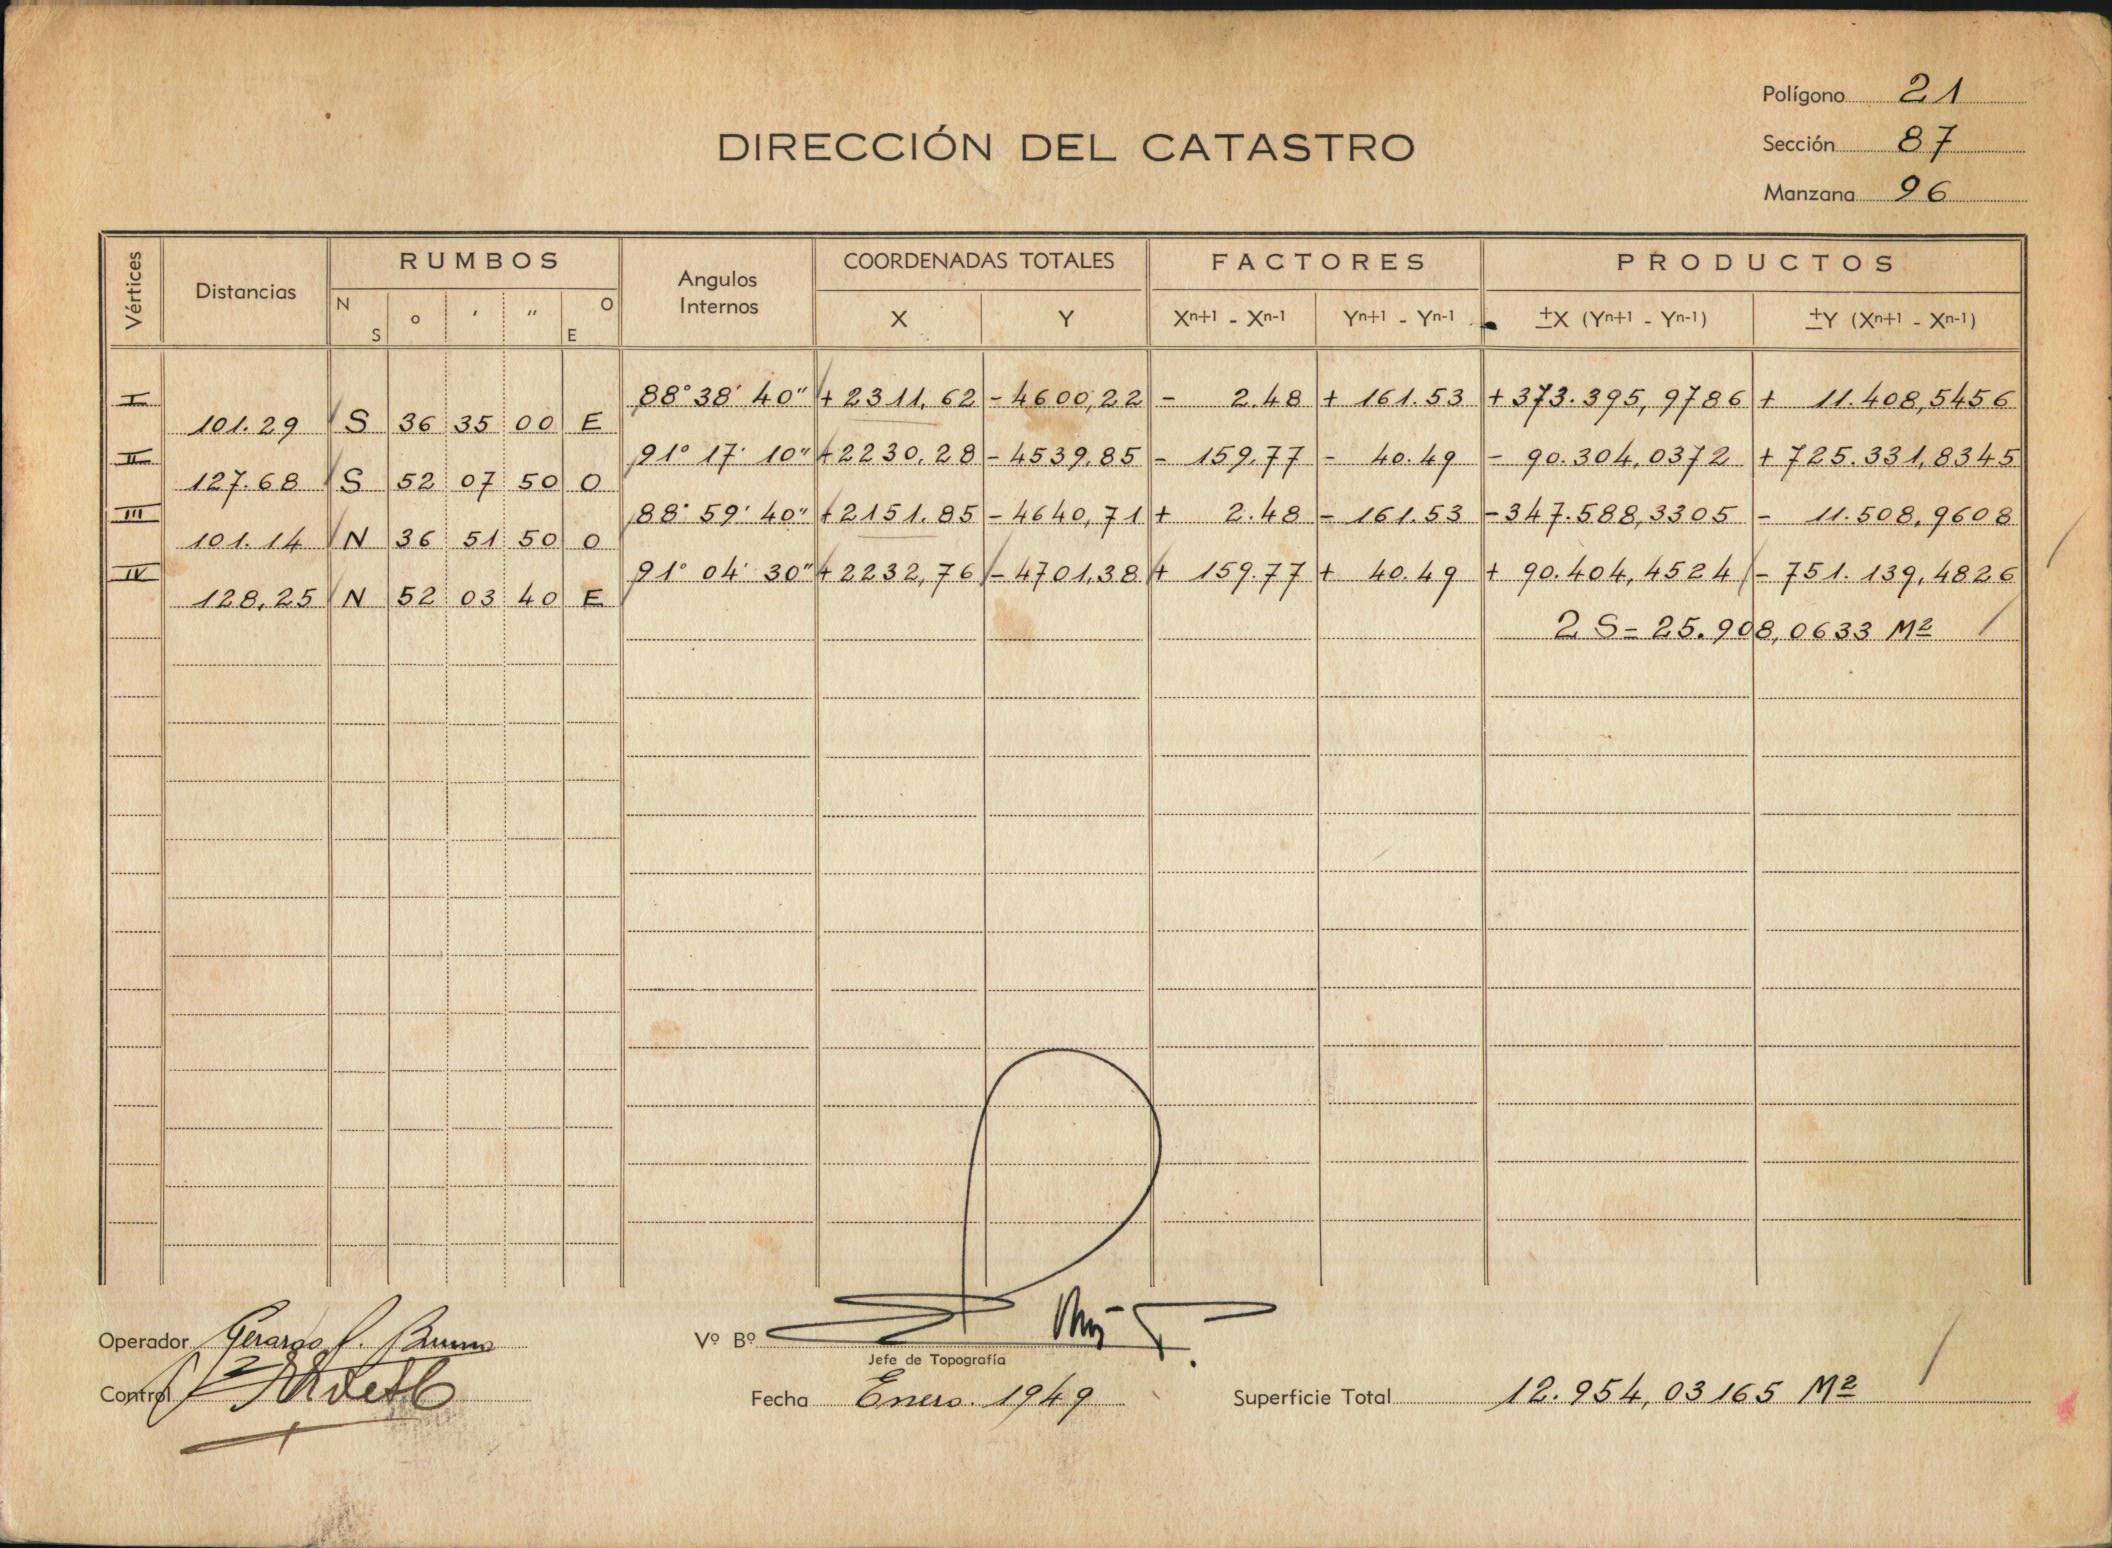 Polígono 21
DIRECCIÓN DEL CATASTRO
Sección 87
Manzana 96
Vértices Distancias RUMBOS Angulos Internos COORDENADAS TOTALES FACTORES PRODUCTOS
N S o ′ ″ O E X Y Xn+1 - Xn-1 Yn+1 - Yn-1 ±X (Yn+1 - Yn-1) ±Y (Xn+1 - Xn-1)
I 88° 38′ 40″ + 2311,62 - 4600,22 - 2.48 + 161.53 + 373.395,9786 + 11.408,5456
101.29 S 36 35 00 E
II 91° 17′ 10″ + 2230,28 - 4539,85 - 159.77 - 40.49 - 90.304,0372 + 725.331,8345
127.68 S 52 07 50 O
III 88° 59′ 40″ + 2151.85 - 4640,71 + 2.48 - 161.53 - 347.588,3305 - 11.508,9608
101.14 N 36 51 50 O
IV 91° 04′ 30″ + 2232,76 - 4701,38 + 159.77 + 40.49 + 90.404,4524 - 751.139,4826
128,25 N 52 03 40 E
2 S = 25.908,0633 M²
Operador Gerardo Bruno Vº Bº
Jefe de Topografía
Control Fecha Enero. 1949 Superficie Total 12.954,03165 M²